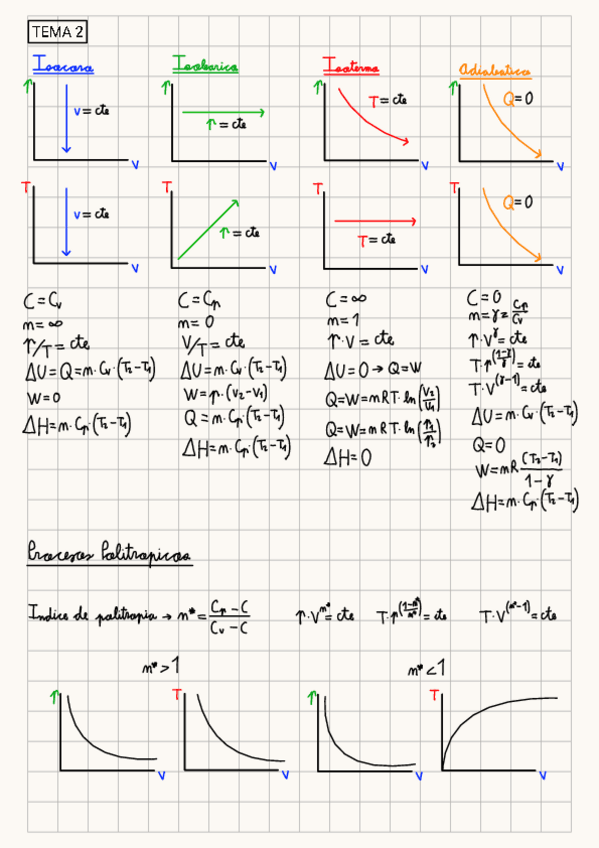 TEMA 2
Isocora Isobarica Isoterma Adiabatica
p v = cte V
p p = cte V
p T = cte V
p Q = 0 V
T v = cte V
T p = cte V
T T = cte V
T Q = 0 V
C = Cv
n = ∞
p/T = cte
ΔU = Q = m·Cv·(T2-T1)
W = 0
ΔH = m·Cp·(T2-T1)
C = Cp
n = 0
V/T = cte
ΔU = m·Cv·(T2-T1)
W = p·(v2-v1)
Q = m·Cp·(T2-T1)
ΔH = m·Cp·(T2-T1)
C = ∞
n = 1
p·V = cte
ΔU = 0 → Q = W
Q = W = mRT·ln(V2/V1)
Q = W = mRT·ln(p1/p2)
ΔH = 0
C = 0
n = γ = Cp/Cv
p·V^γ = cte
T·p^((1-γ)/γ) = cte
T·V^(γ-1) = cte
ΔU = m·Cv·(T2-T1)
Q = 0
W = mR·(T2-T1)/(1-γ)
ΔH = m·Cp·(T2-T1)
Procesos Politropicos
Indice de politropia → n* = (Cp-C)/(Cv-C) p·V^n* = cte T·p^((1-n*)/n*) = cte T·V^(n*-1) = cte
n* > 1 n* < 1
p V T V p V T V